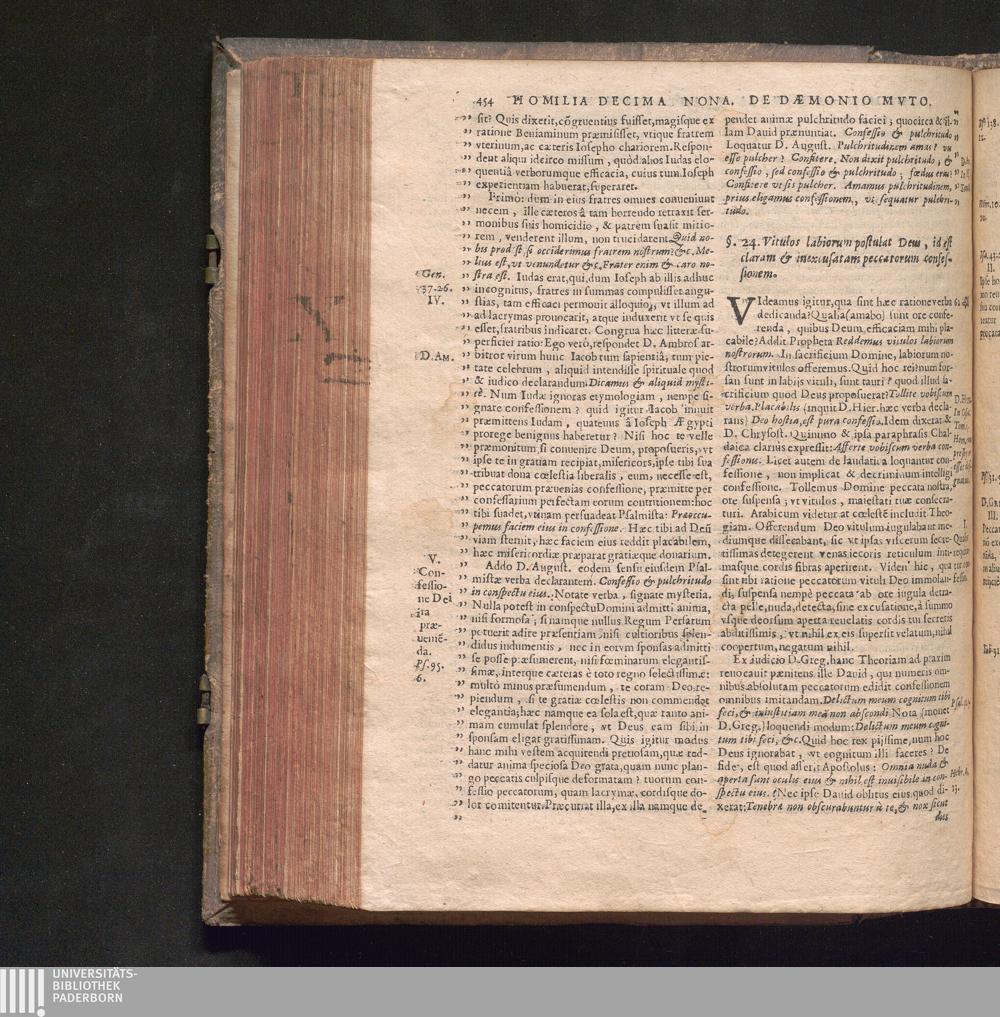 454 HOMILIA DECIMA NONA. DE DÆMONIO MVTO.
sit? Quis dixerit, cōgruentius fuisset, magisque ex
ratione Beniaminum præmisisset, vtique fratrem
vterinum, ac cæteris Iosepho chariorem. Respon-
deut aliqui idcirco missum, quòd alios Iudas elo-
quentiâ verborumque efficacia, cuius tum Ioseph
experientiam habuerat, superaret.
Primò: dum in eius fratres omnes conueniunt
necem, ille cæteros â tam horrendo retraxit ser-
monibus suis homicidio, & patrem suasit mitio-
rem, venderent illum, non trucidarent. Quid no-
bis prodest, si occiderimus fratrem nostrum? &c. Me-
lius est, vt venundetur &c. Frater enim & caro no-
stra est. Iudas erat, qui, dum Ioseph ab illis adhuc
incognitus, fratres in summas compulisset angu-
stias, tam efficaci permouit alloquio, vt illum ad
ad lacrymas prouocarit, atque induxerit vt se quis
esset, fratribus indicaret. Congrua hæc litteræ su-
perficiei ratio: Ego verò, respondet D. Ambros. ar-
bitror virum hunc Iacob tum sapientiâ, tum pie-
tate celebrem, aliquid intendisse spirituale quod
& iudico declarandum. Dicamus & aliquid mysti-
cè. Num Iudæ ignoras etymologiam, nempe si-
gnare confessionem? quid igitur Iacob inquit
præmittens Iudam, quatenus â Ioseph Ægypti
prorege benignus haberetur? Nisi hoc te velle
præmonitum, si conuenire Deum, proposueris, vt
ipse te in gratiam recipiat, misericors, ipse tibi sua
tribuat dona cœlestia liberalis, eum, necesse est,
peccatorum præuenias confessione, præmitte per
confessarium perfectam eorum contritionem: hoc
tibi suadet, vtinam persuadeat Psalmista: Præoccu-
pemus faciem eius in confessione. Hæc tibi ad Deū
viam sternit, hæc faciem eius reddit placabilem,
hæc misericordiæ præparat gratiæque donarium.
Addo D. August. eodem sensu eiusdem Psal-
mistæ verba declarantem. Confessio & pulchritudo
in conspectu eius. Notate verba, signate mysteria.
Nulla potest in conspectu Domini admitti anima,
nisi formosa; si namque nullus Regum Persarum
potuerit adire præsentiam nisi cultioribus splen-
didus indumentis, nec in eorum sponsas admitti
se posse præsumerent, nisi fœminarum elegantis-
simæ, interque cæteras è toto regno selectissimæ:
multò minus præsumendum, te coram Deo re-
piendum, si te gratiæ cœlestis non commendet
elegantia; hæc namque ea sola est, quæ tanto ani-
mam cumulat splendore, vt Deus eam sibi in
sponsam eligat gratissimam. Quis igitur modus
hanc mihi vestem acquirendi pretiosam, quæ red-
datur anima speciosa Deo grata, quam nunc plan-
go peccatis culpisque deformatam? tuorum con-
fessio peccatorum, quam lacrymæ, cordisque do-
lor comitentur. Præcurrat illa, ex illa namque de-
Gen.
37.26.
IV.
D. AM.
V.
Con-
fessio-
ne Dei
ira
præ-
ueniē-
da.
Ps. 95.
6.
pendet animæ pulchritudo faciei; quocirca & il-
lam Dauid prænuntiat. Confessio & pulchritudo
Loquatur D. August. Pulchritudinem amas? vis
esse pulcher? Confitere. Non dixit pulchritudo, &
confessio, sed confessio & pulchritudo; fœdus eras?
Confitere vt sis pulcher. Amamus pulchritudinem,
prius eligamus confessionem, vt sequatur pulchri-
tudo.
§. 24. Vitulos labiorum postulat Deus, id est
claram & inexcusatam peccatorum confes-
sionem.
VIdeamus igitur, qua sint hæc ratione verba
dedicanda? Qualia (amabo) sunt ore confe-
renda, quibus Deum efficaciam mihi pla-
cabile? Addit Propheta Reddemus vitulos labiorum
nostrorum. In sacrificium Domine, labiorum no-
strorum vitulos offeremus. Quid hoc rei? num for-
san sunt in labijs vituli, sunt tauri? quod illud sa-
crificium quod Deus proposuerat? Tollite vobiscum
verba. Placabilis (inquit D. Hier. hæc verba decla-
rans) Deo hostia, est pura confessio. Idem dixerat &
D. Chrysost. Quinimo & ipsa paraphrasis Chal-
daica clariùs expressit: Afferte vobiscum verba con-
fessionis. Licet autem de laudatiua loquantur con-
fessione, non implicat & decriminum intelligi
confessione. Tollemus Domine peccata nostra,
ore suspensa; vt vitulos, maiestati tuæ consecra-
turi. Arabicum videtur at cœlestē includit Theo-
giam. Offerendum Deo vitulum iugulabant me-
diumque dissecabant, sic vt ipsas viscerum secre-
tissimas detegerent venas iecoris reticulum inti-
masque cordis fibras aperirent. Viden' hic, qua
sint tibi ratione peccatorum vituli Deo immolan-
di, suspensa nempè peccata ab ore iugula detra-
cta pelle, nuda, detecta, sine excusatione, à summo
vsque deorsum aperta reuelatis cordis tui secretis
abditissimis, vt nihil ex eis supersit velatum, nihil
coopertum, negatum nihil.
Ex iudicio D. Greg. hanc Theoriam ad praxim
renocauit pænitens ille Dauid, qui numeris om-
nibus absolutam peccatorum edidit confessionem
omnibus imitandam. Delictum meum cognitum tibi
feci, & iniustitiam meā non abscondi. Nota (monet
D. Greg.) loquendi modum: Delictum meum cogni-
tum tibi feci, &c. Quid hoc rex pijssime, num hoc
Deus ignorabat, vt cognitum illi faceres? De
fide, est quod asserit Apostolus: Omnia nuda &
aperta sunt oculis eius & nihil est inuisibile in con-
spectu eius. Nec ipse Dauid oblitus eius quod di-
xerat: Tenebræ non obscurabuntur à te, & nox sicut
dies
UNIVERSITÄTS-
BIBLIOTHEK
PADERBORN